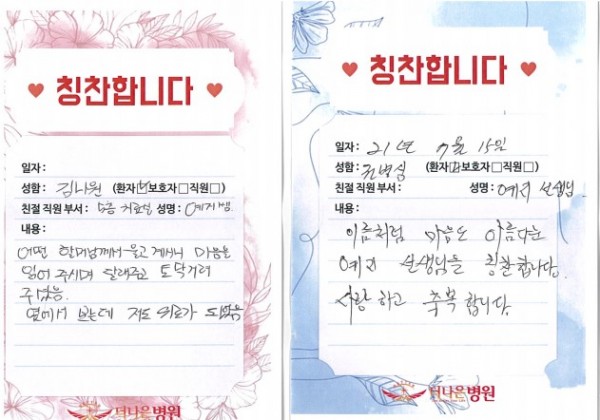 칭찬합니다
일자:
성함: 김나원 (환자☑보호자□직원□)
친절 직원 부서: 5층 치료실 성명: 예지쌤
내용:
어떤 할머님께서 울고 계시니 마음을
읽어 주시며 달래주고 토닥거려
주었음.
옆에서 보는데 저도 위로가 되었음
더나은병원
칭찬합니다
일자: 21년 7월 15일
성함: (환자☑보호자□직원□)
친절 직원 부서: 성명: 예지 선생님
내용:
이름처럼 마음도 아름다운
예지 선생님을 칭찬합니다.
사랑하고 축복합니다.
더나은병원